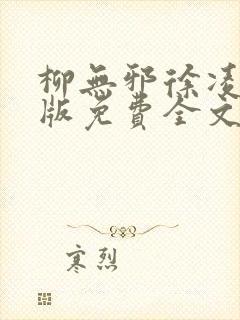 柳無邪徐凌
版免費全文
寒烈